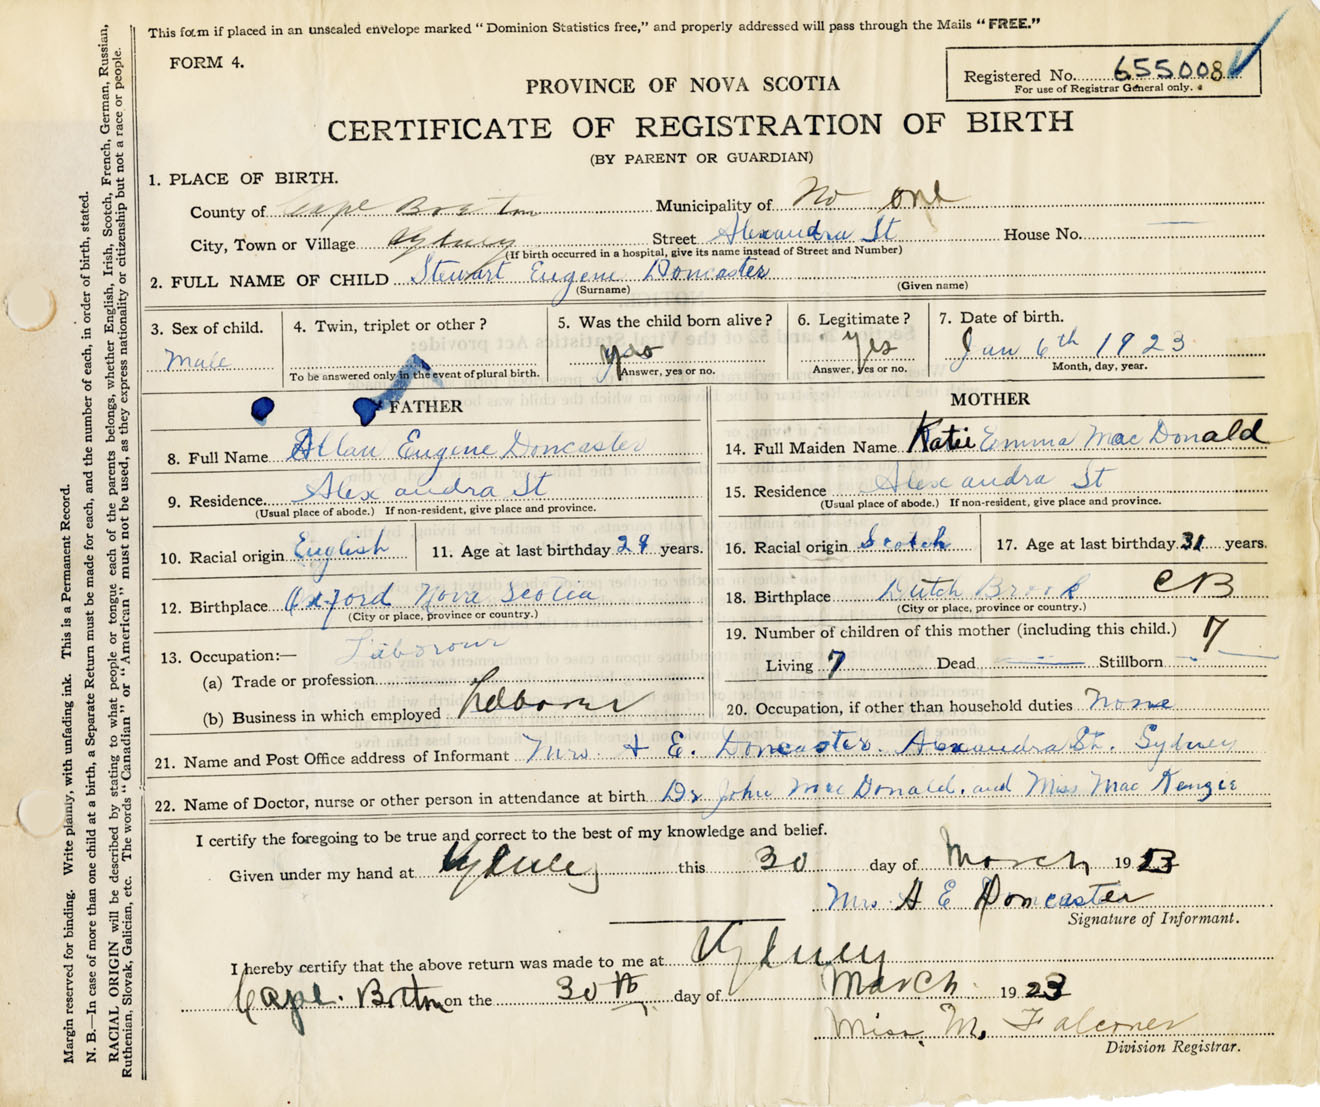 This form if placed in an unsealed envelope marked "Dominion Statistics free," and properly addressed will pass through the Mails "FREE."
FORM 4.
Registered No. 655008
For use of Registrar General only.
PROVINCE OF NOVA SCOTIA
CERTIFICATE OF REGISTRATION OF BIRTH
(BY PARENT OR GUARDIAN)
1. PLACE OF BIRTH.
County of Cape Breton Municipality of No one
City, Town or Village Sydney Street Alexandra St House No. —
(If birth occurred in a hospital, give its name instead of Street and Number)
2. FULL NAME OF CHILD Stewart Eugene Doncaster
(Surname) (Given name)
3. Sex of child. 4. Twin, triplet or other? 5. Was the child born alive? 6. Legitimate? 7. Date of birth.
Male yes yes Jan 6th 1923
To be answered only in the event of plural birth. Answer, yes or no. Answer, yes or no. Month, day, year.
FATHER MOTHER
8. Full Name Allan Eugene Doncaster
14. Full Maiden Name Katie Emma MacDonald
9. Residence Alexandra St
(Usual place of abode.) If non-resident, give place and province.
15. Residence Alexandra St
(Usual place of abode.) If non-resident, give place and province.
10. Racial origin English 11. Age at last birthday 29 years.
16. Racial origin Scotch 17. Age at last birthday 31 years.
12. Birthplace Oxford Nova Scotia
(City or place, province or country.)
18. Birthplace Dutch Brook CB
(City or place, province or country.)
13. Occupation:— Laborour
(a) Trade or profession
(b) Business in which employed Labourer
19. Number of children of this mother (including this child.) 7
Living 7 Dead — Stillborn —
20. Occupation, if other than household duties None
21. Name and Post Office address of Informant Mrs. A E. Doncaster. Alexandra St. Sydney
22. Name of Doctor, nurse or other person in attendance at birth Dr John MacDonald. and Miss MacKenzie
I certify the foregoing to be true and correct to the best of my knowledge and belief.
Given under my hand at Sydney this 30 day of March 1923
Mrs. A E Doncaster
Signature of Informant.
I hereby certify that the above return was made to me at Sydney
Cape. Breton on the 30th day of March 1923
Miss. M. Falconer
Division Registrar.
Margin reserved for binding. Write plainly, with unfading ink. This is a Permanent Record.
N. B.—In case of more than one child at a birth, a Separate Return must be made for each, and the number of each, in order of birth, stated.
RACIAL ORIGIN will be described by stating to what people or tongue each of the parents belongs, whether English, Irish, Scotch, French, German, Russian,
Ruthenian, Slovak, Galician, etc. The words "Canadian" or "American" must not be used, as they express nationality or citizenship but not a race or people.